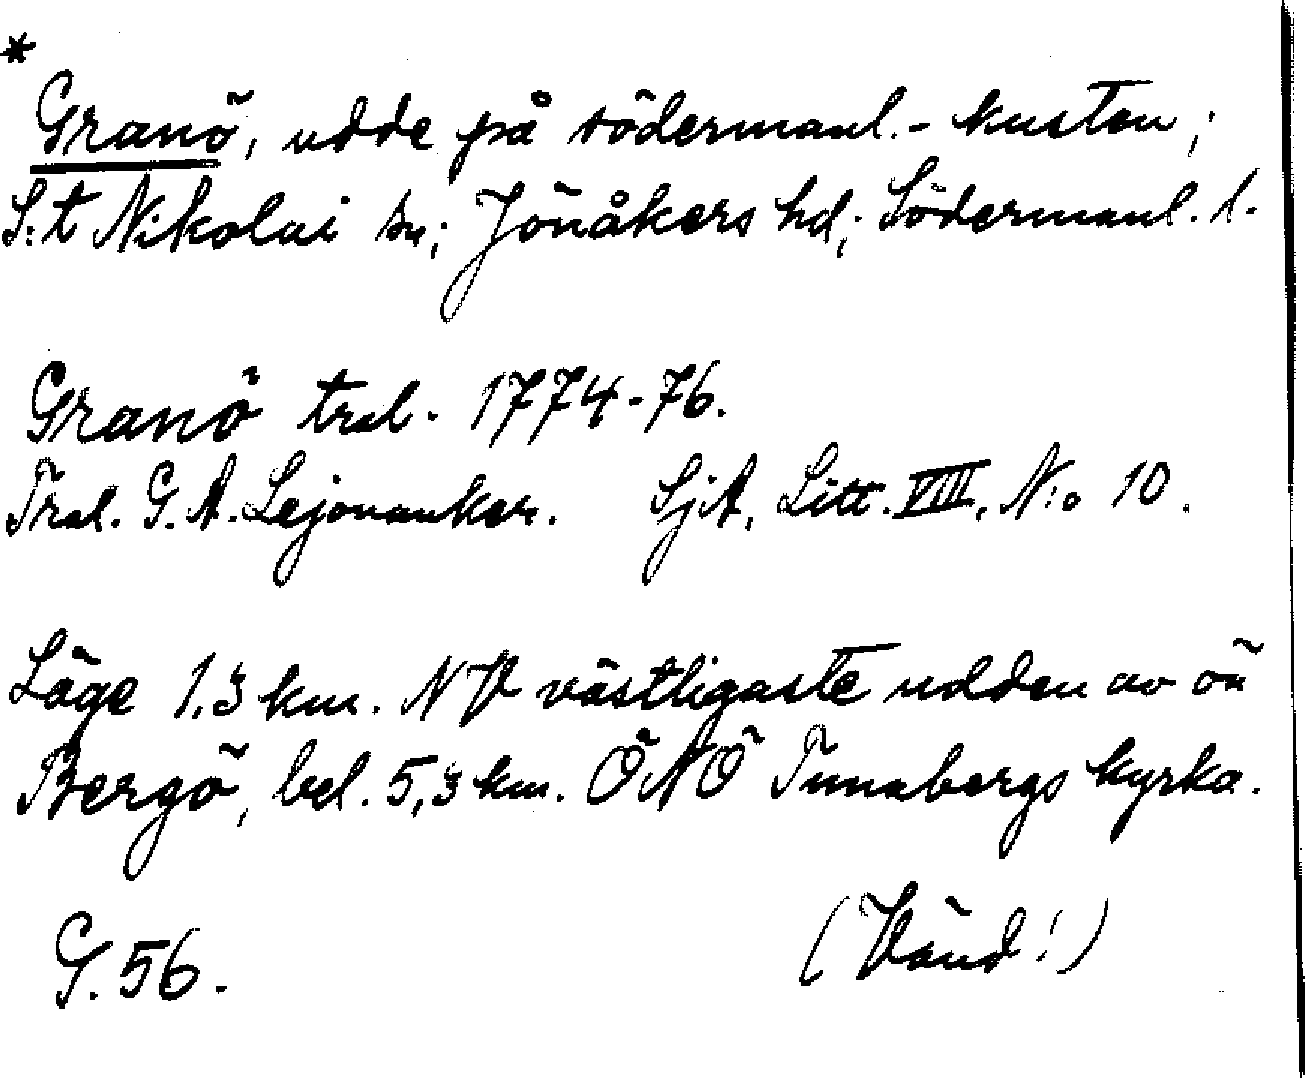 *
Granö, udde på södermanl.-kusten;
S:t Nikolai sn; Jönåkers hd; Södermanl. l.
Granö tral. 1774-76.
Tral. G. A. Lejonanker. SjA, Litt. VIII, N:o 10.
Läge 1,3 km. NV västligaste udden av ön
Bergö, bel. 5,3 km. ÖNÖ Tunabergs kyrka.
G. 56. (Vänd!)